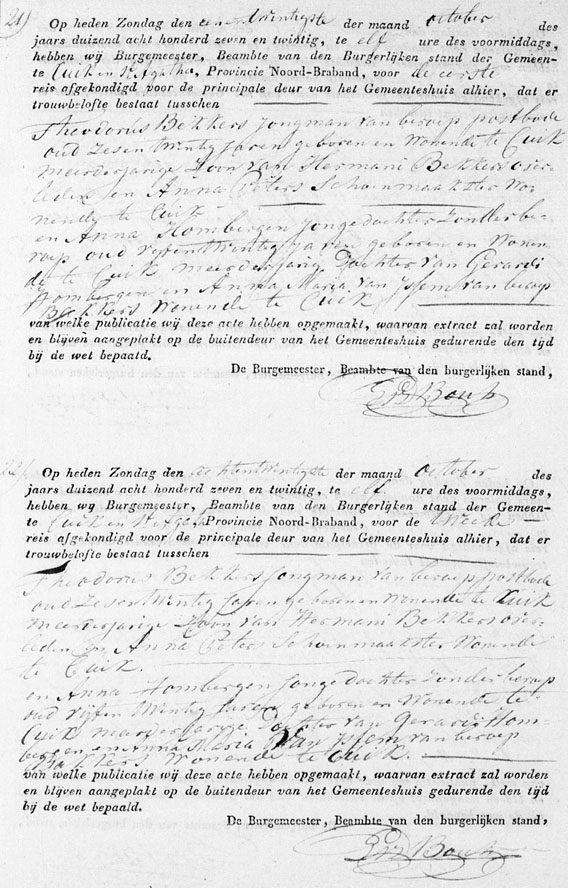 21)
Op heden Zondag den een en twintigste der maand october des
jaars duizend acht honderd zeven en twintig, te elf ure des voormiddags,
hebben wij Burgemeester, Beambte van den Burgerlijken stand der Gemeen-
te Cuik en St. Agatha, Provincie Noord-Braband, voor de eerste
reis afgekondigd voor de principale deur van het Gemeenteshuis alhier, dat er
trouwbelofte bestaat tusschen
Theodorus Bekkers Jongman van beroep postbode
oud Zesentwintig Jaren geboren en Wonende te Cuik
meerderjarige Zoon van Hermani Bekkers over-
leden en Anna Peters Schoenmaakster Wo-
nende te Cuik
en Anna Hombergen Jongedochter Zonder be-
roep oud vijfentwintig Jaren geboren en Wonen-
de te Cuik meerderjarige Dochter van Gerardi
Hombergen en Anna Maria van van beroep
Bakkers Wonende te Cuik
van welke publicatie wij deze acte hebben opgemaakt, waarvan extract zal worden
en blijven aangeplakt op de buitendeur van het Gemeenteshuis gedurende den tijd
bij de wet bepaald.
De Burgemeester, Beambte van den burgerlijken stand,
22)
Op heden Zondag den achtentwintigste der maand October des
jaars duizend acht honderd zeven en twintig, te elf ure des voormiddags,
hebben wij Burgemeester, Beambte van den Burgerlijken stand der Gemeen-
te Cuik en St. Agatha Provincie Noord-Braband, voor de tweede
reis afgekondigd voor de principale deur van het Gemeenteshuis alhier, dat er
trouwbelofte bestaat tusschen
Theodorus Bekkers Jongman van beroep postbode
oud Zesentwintig Jaren geboren en Wonende te Cuik
meerderjarige Zoon van Hermani Bekkers over-
leden en Anna Peters Schoenmaakster Wonende
te Cuik.
en Anna Hombergen Jonge dochter Zonder beroep
oud vijfentwintig Jaren geboren en Wonende te
Cuik meerderjarige Dochter van Gerardi Hom-
bergen en Anna Maria van van beroep
Bakkers Wonende te Cuik.
van welke publicatie wij deze acte hebben opgemaakt, waarvan extract zal worden
en blijven aangeplakt op de buitendeur van het Gemeenteshuis gedurende den tijd
bij de wet bepaald.
De Burgemeester, Beambte van den burgerlijken stand,